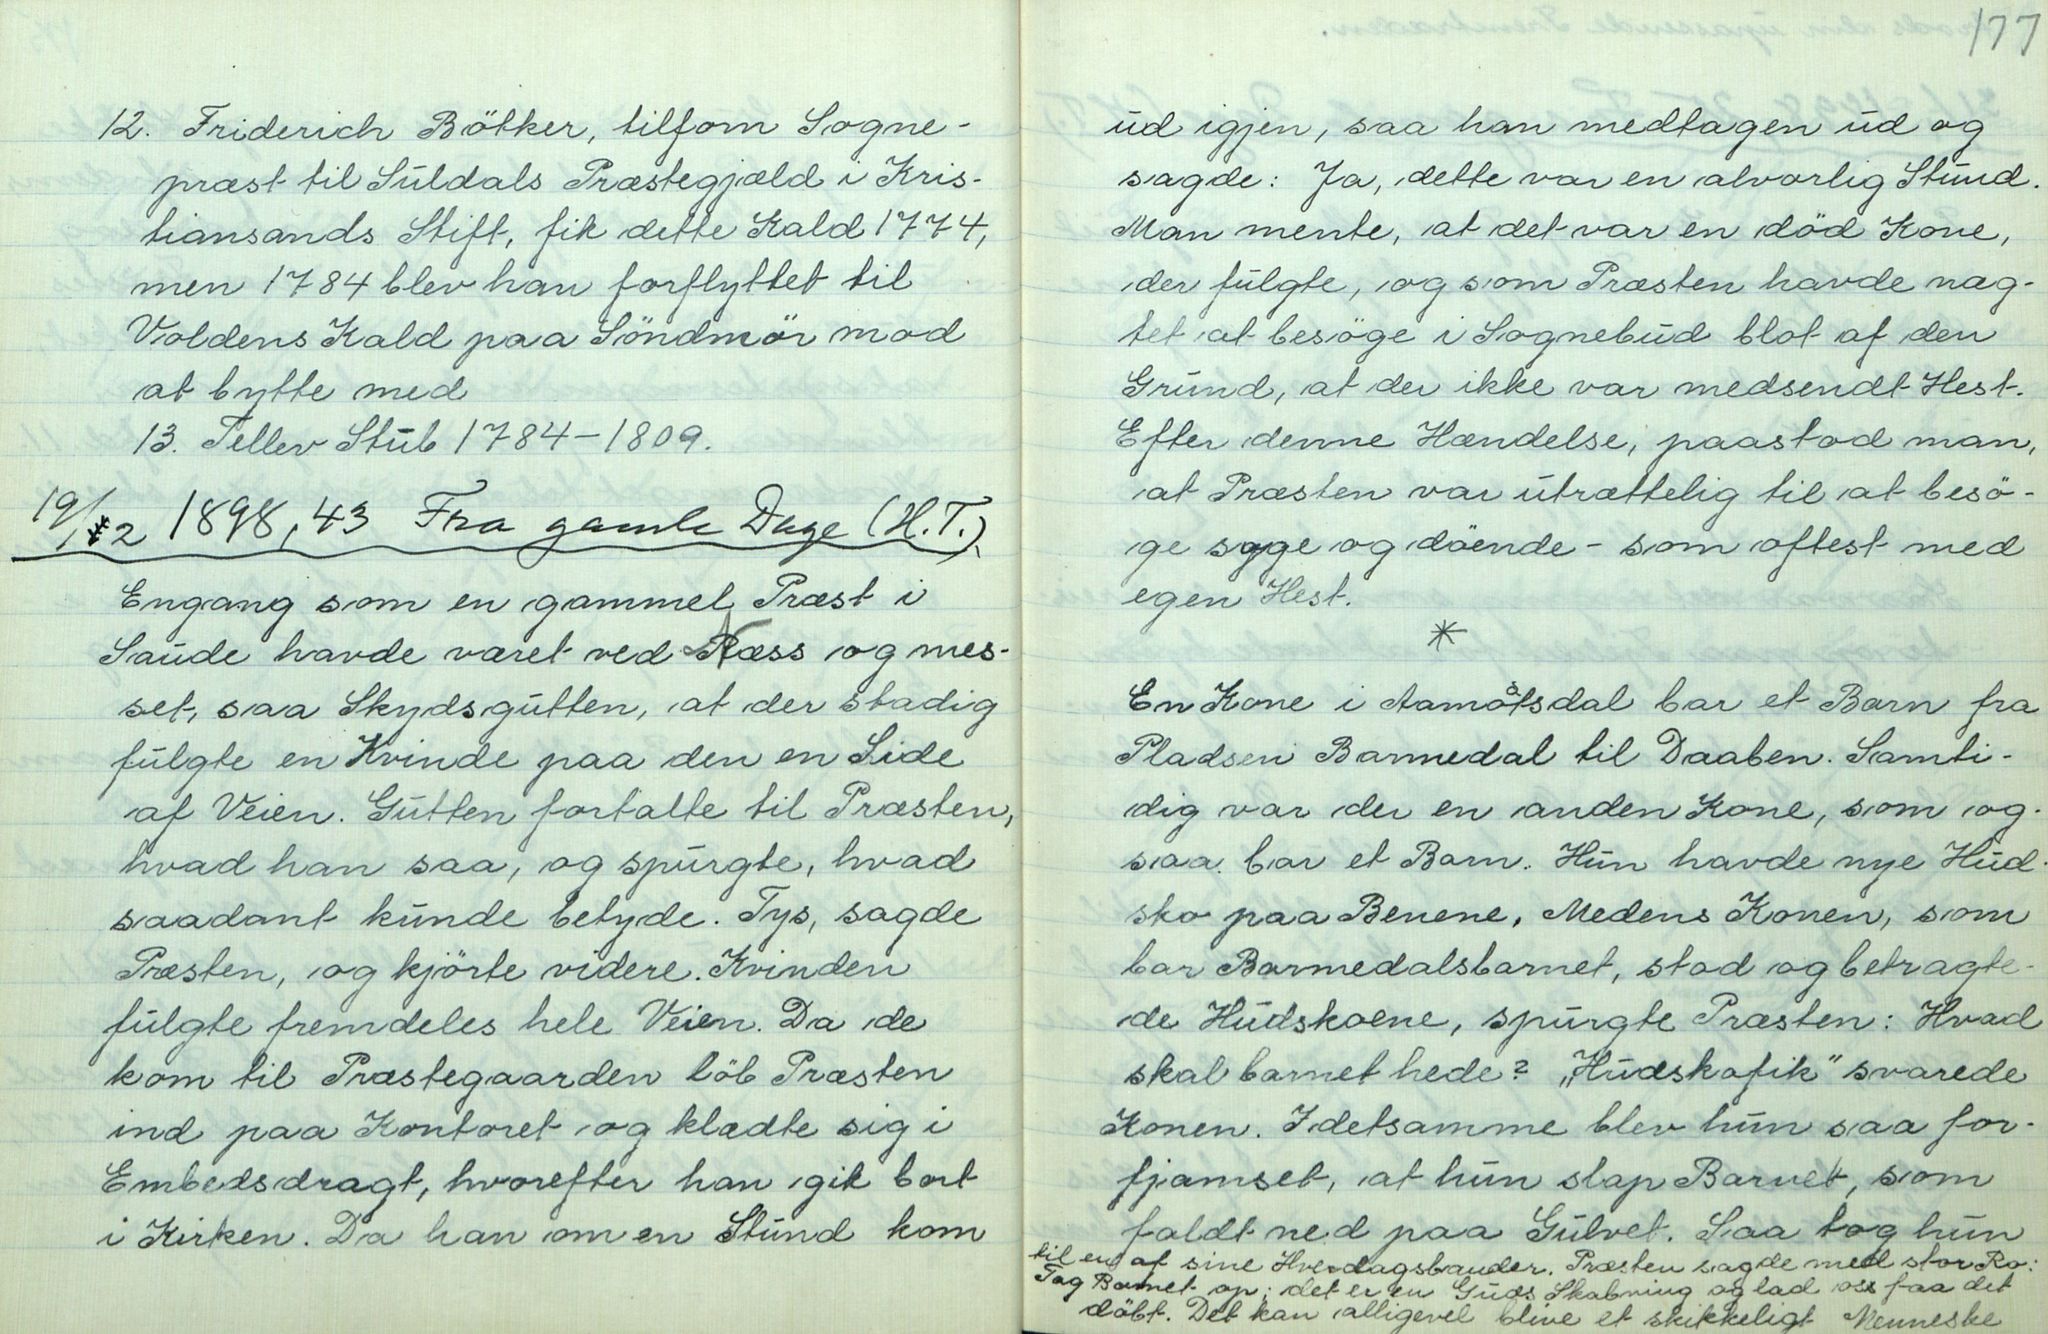 12. Friderich Bötker, tilforn Sogne-
præst til Suldals Præstegjæld i Kris-
tiansands Stift, fik dette Kald 1774,
men 1784 blev han forflyttet til
Voldens Kald paa Söndmör mod
at bytte med
13. Tellev Stub 1784-1809.
19/12 1898, 43 Fra gamle Dage (H.T.).
Engang som en gammel Præst i
Saude havde været ved Næss og mes-
set, saa Skydsgutten, at der stadig
fulgte en Kvinde paa den en Side
af Veien. Gutten fortalte til Præsten,
hvad han saa, og spurgte, hvad
saadant kunde betyde. Tys, sagde
Præsten, og kjörte videre. Kvinden
fulgte fremdeles hele Veien. Da de
kom til Præstegaarden löb Præsten
ind paa Kontoret og klædte sig i
Embedsdragt, hvorefter han gik bort
i Kirken. Da han om en Stund kom
177
ud igjen, saa han medtagen ud og
sagde: Ja, dette var en alvorlig Stund.
Man mente, at det var en död Kone,
der fulgte, og som Præsten havde næg-
tet at besöge i Sognebud blot af den
Grund, at der ikke var medsendt Hest.
Efter denne Hændelse, paastod man,
at Præsten var utrættelig til at besö-
ge syge og döende - som oftest med
egen Hest.
*
En Kone i Aamotsdal bar et Barn fra
Pladsen Barmedal til Daaben. Samti-
dig var der en anden Kone, som og-
saa bar et Barn. Hun havde nye Hud-
sko paa Benene. Medens Konen, som
bar Barmedalsbarnet, stod og betragte-
de Hudskoene, spurgte Præsten: Hvad
skal barnet hede? „Hudskofik" svarede
Konen. I detsamme blev hun saa for-
fjamset, at hun slap Barnet, som
faldt ned paa Gulvet. Saa tog hun
til en af sine Hverdagsbander. Præsten sagde med stor Ro:
Tag Barnet op; det er en Guds Skabning og lad oss faa det
döbt. Det kan alligevel blive et skikkeligt Menneske